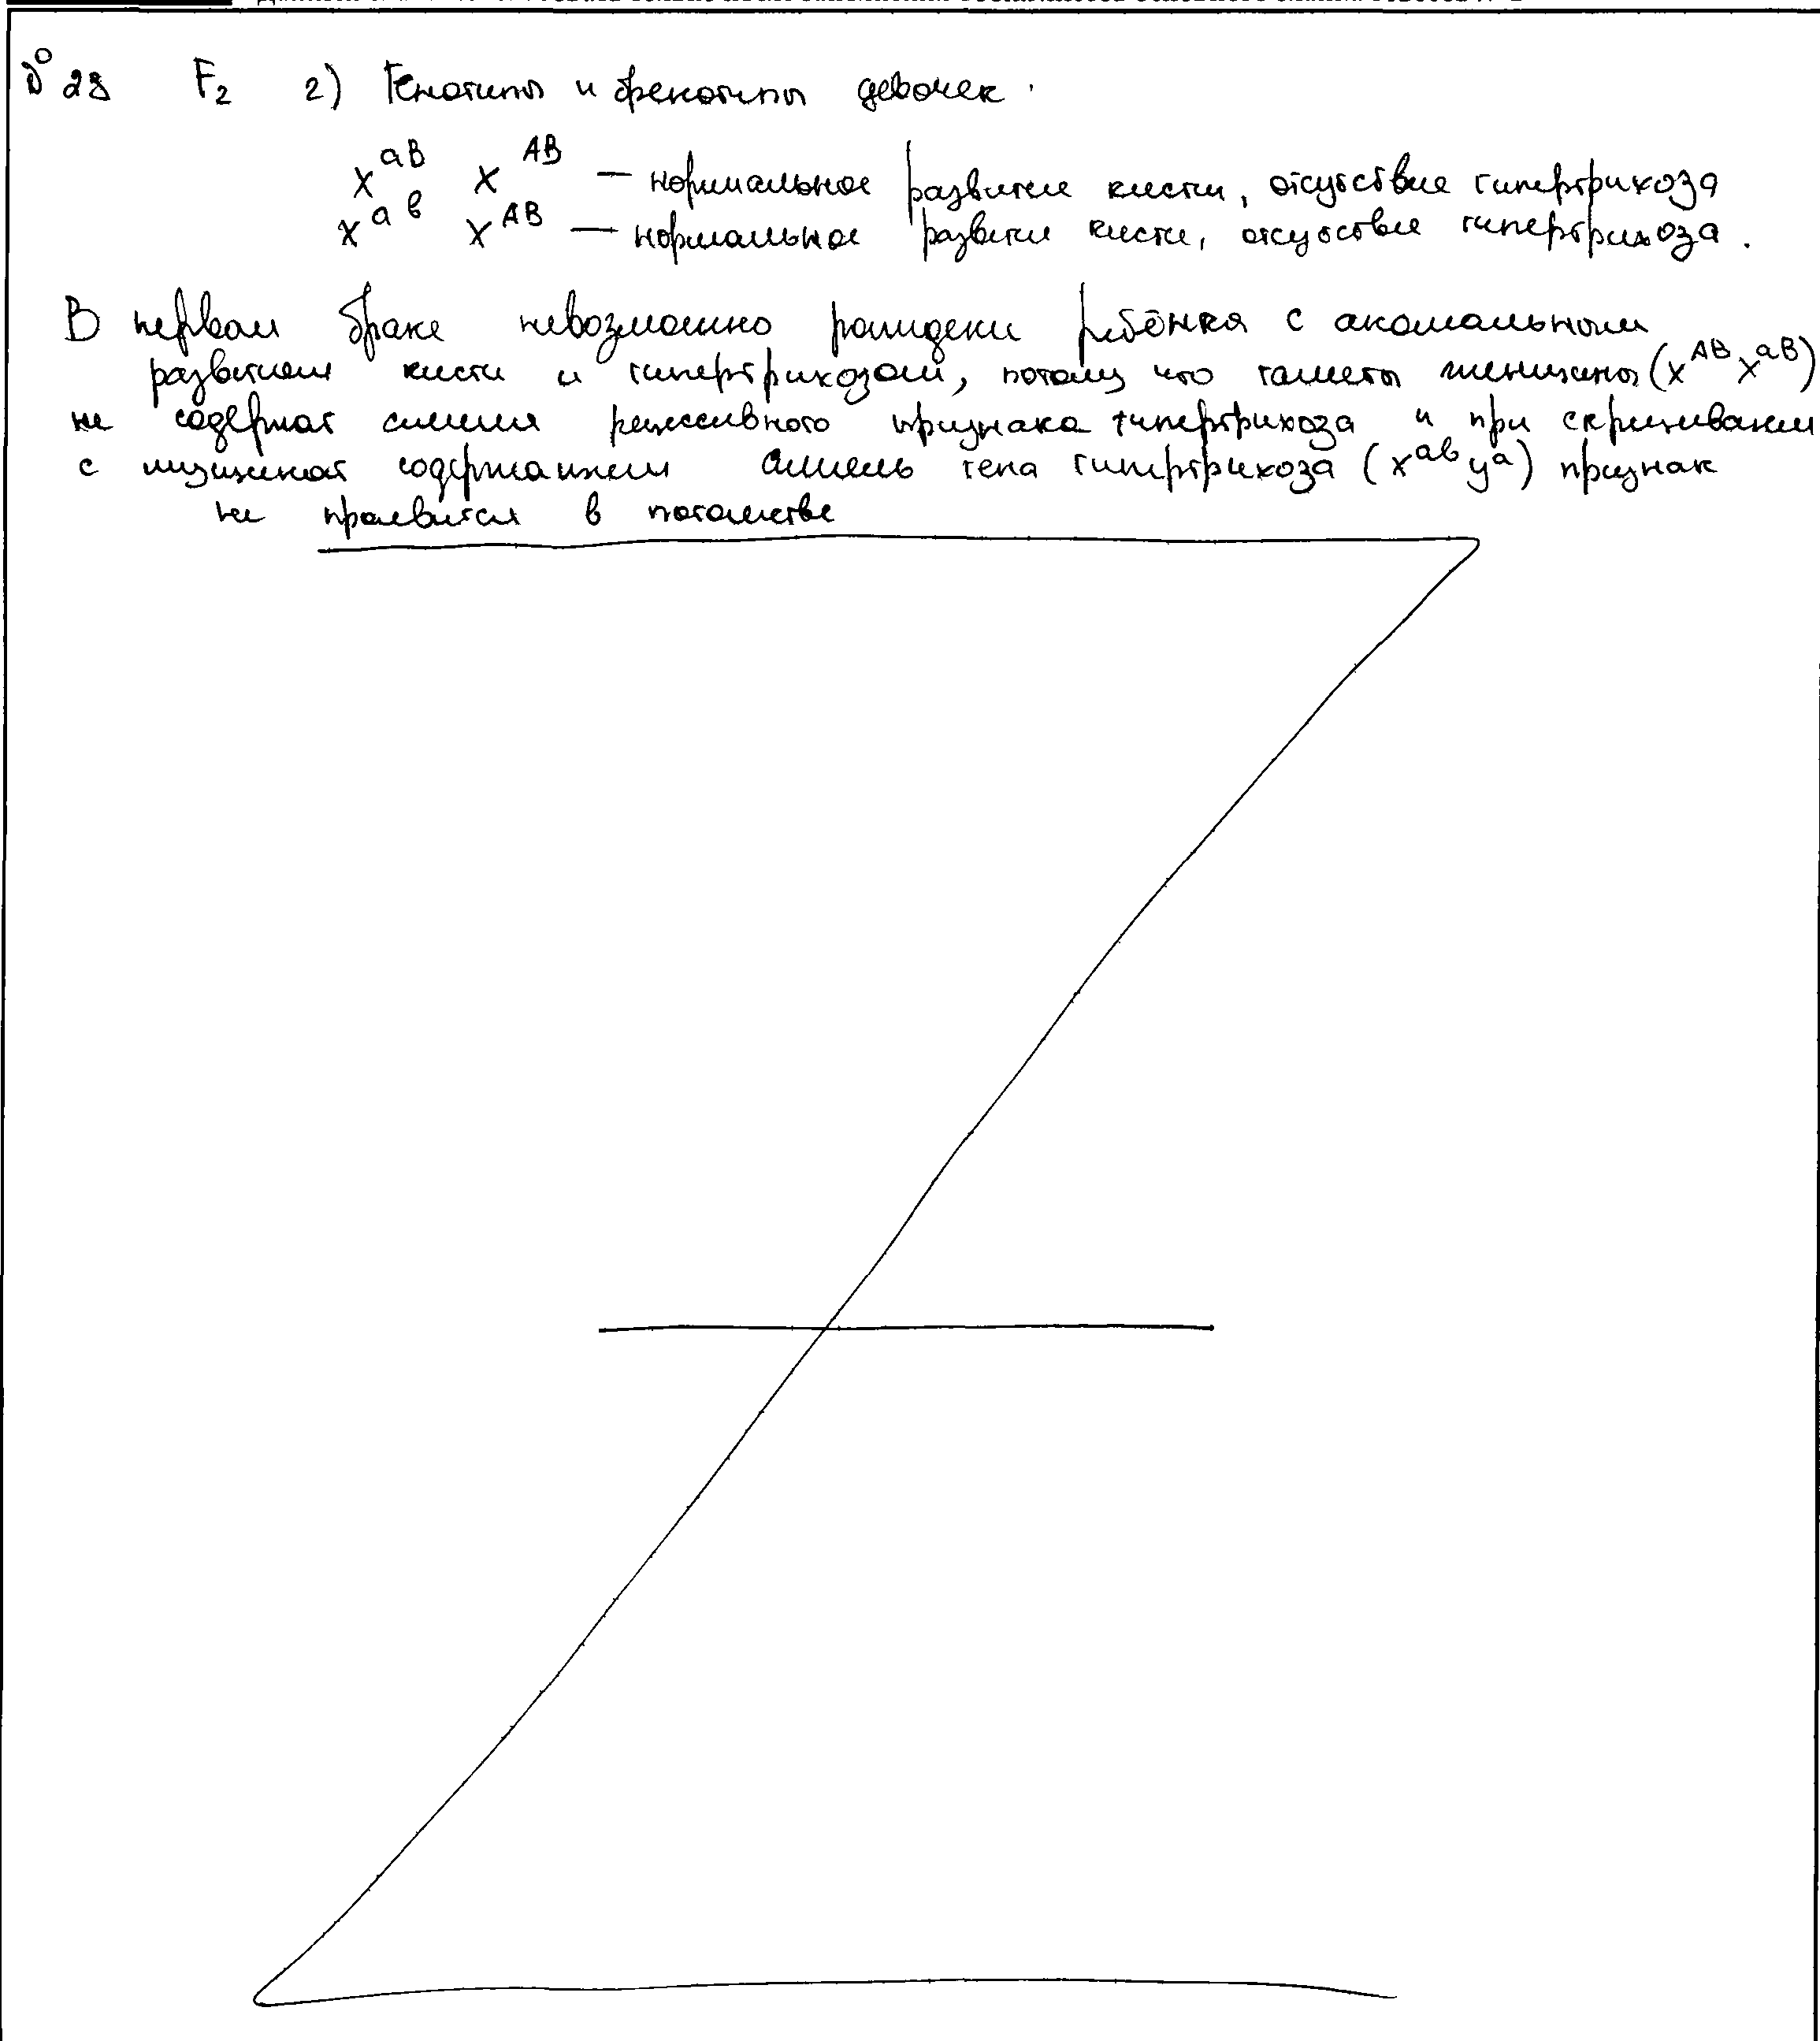 № 28 F₂ 2) Генотипы и фенотипы девочек.
X^aB X^AB — нормальное развитие кисти, отсутствие гипертрихоза
X^aв X^AB — нормальное развитие кисти, отсутствие гипертрихоза.
В первом браке невозможно рождение ребёнка с аномальным
развитием кисти и гипертрихозом, потому что гаметы женщины (X^AB X^aB)
не содержат аллеля рецессивного признака гипертрихоза и при скрещивании
с мужчиной содержащем аллель гена гипертрихоза (X^ab Y^a) признак
не проявится в потомстве